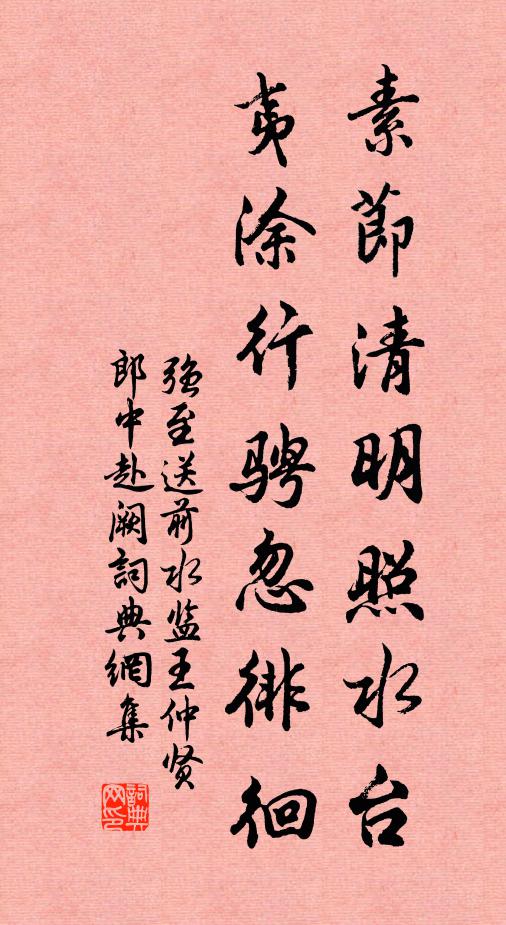 素節清明照水台
夷涂行骋忽徘徊
强至送前水监王仲贤
郎中赴阙詞典網集
詞典网印